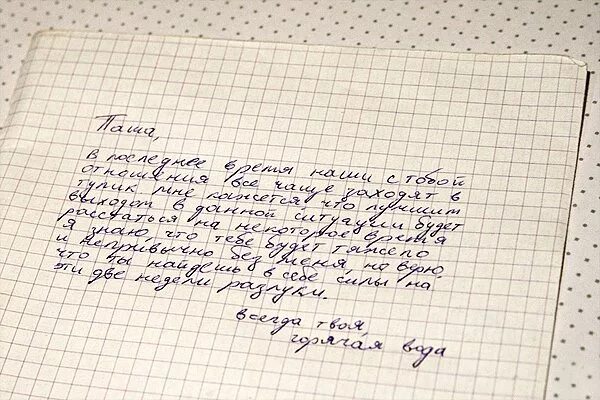 Паша,
в последнее время наши с тобой
отношения все чаще заходят в
тупик. мне кажется, что лучшим
выходом в данной ситуации будет
расстаться на некоторое время
я знаю, что тебе будет тяжело
и непривычно без меня, на верю,
что ты найдешь в себе силы на
эти две недели разлуки.
всегда твоя,
горячая вода